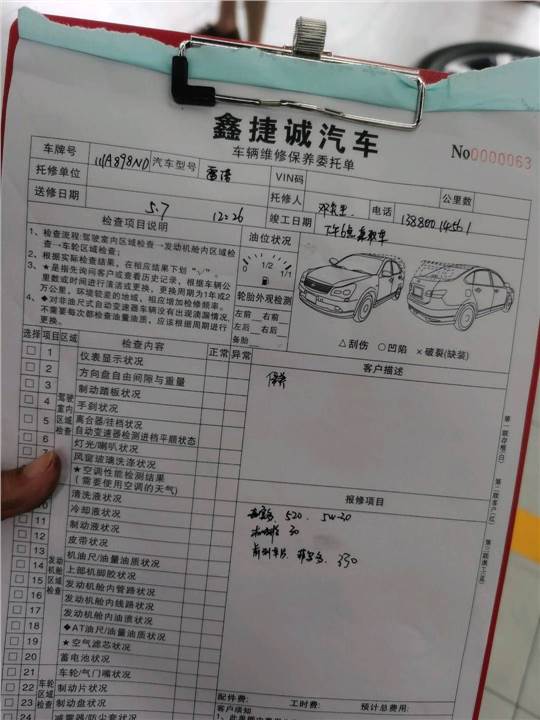 鑫捷诚汽车
车辆维修保养委托单
No0000063
车牌号 川A898ND 汽车型号 雷诺 VIN码
托修单位 托修人 电话 公里数
送修日期 5.7 12:26 竣工日期
检查项目说明 油位状况
1、检查流程:驾驶室内区域检查→发动机舱内区域检查→车轮区域检查。
2、根据实际检查结果,在相应结果下划"√"。
3、★是指先询问客户或查看历史记录,根据车辆公里数或时间进行清洁或更换,更换周期为1年或2万公里,环境较差的地域,相应增加检修频率。
4、◆对非油尺式自动变速器车辆没有出现滴漏情况,不需要每次都检查油量油质,应该根据周期进行更换。
0 1/2 1/1
轮胎外观检测
左前 右前
左后 右后
备胎
△刮伤 ○凹陷 ×破裂(缺装)
选择 项目 区域 检查内容 正常 异常 客户描述
1 仪表显示状况
保养
2 方向盘自由间隙与重量
3 制动踏板状况
驾驶室内区域检查
4 手刹状况
5 离合器/挂档状况
自动变速器检测进档平顺状态
6 灯光/喇叭状况
7 风窗玻璃洗涤状况
★空调性能检测结果
(需要使用空调的天气)
报修项目
清洗液状况
10 冷却液状况
520. 5W-30
11 制动液状况
30
12 皮带状况
330
13 机油尺/油量油质状况
发动机舱区域检查
14 上部机脚胶状况
15 发动机舱内管路状况
16 发动机舱内线路状况
17 发动机舱内油渍状况
18 ◆AT油尺/油量状况
19 ★空气滤芯状况
20 蓄电池状况
21 车轮/气门嘴状况
车轮区域检查
22 制动片状况
23 制动盘状况
24 减震器/防尘套状况
配件费: 工时费: 预计总费用:
客户须知
第一联存根(白)
第二联客户(红)
第三联施工(蓝)